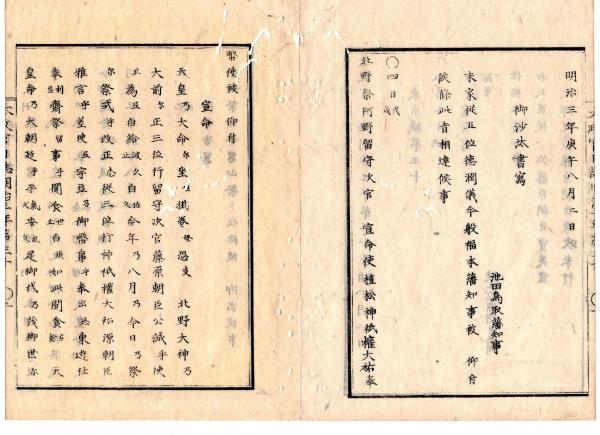 明治三年庚午八月二日
御沙汰書寫
池田鳥取藩知事
末家從五位德潤儀今般福本藩知事被　仰付
候條此旨相達候事
〇四日戊
北野祭阿野留守次官　宣命使植松神祇權大祐奉
幣使被仰付
宣命
天皇乃大命尓坐世掛卷毛恐支　北野大神乃
大前尓正三位行留守次官藤原朝臣公誠乎使
止為氐白給波久自今年乃八月乃今日乃祭
尓祭式乎改正志從三位行神祇權大祐源朝臣
雅言乎差使氐宇豆乃御幣帛乎奉出志東遊仕
奉利齋祭留事乎聞食世止白須如此聞食氐天
皇命乃大朝廷乎平久安久足御代乃茂御世尓